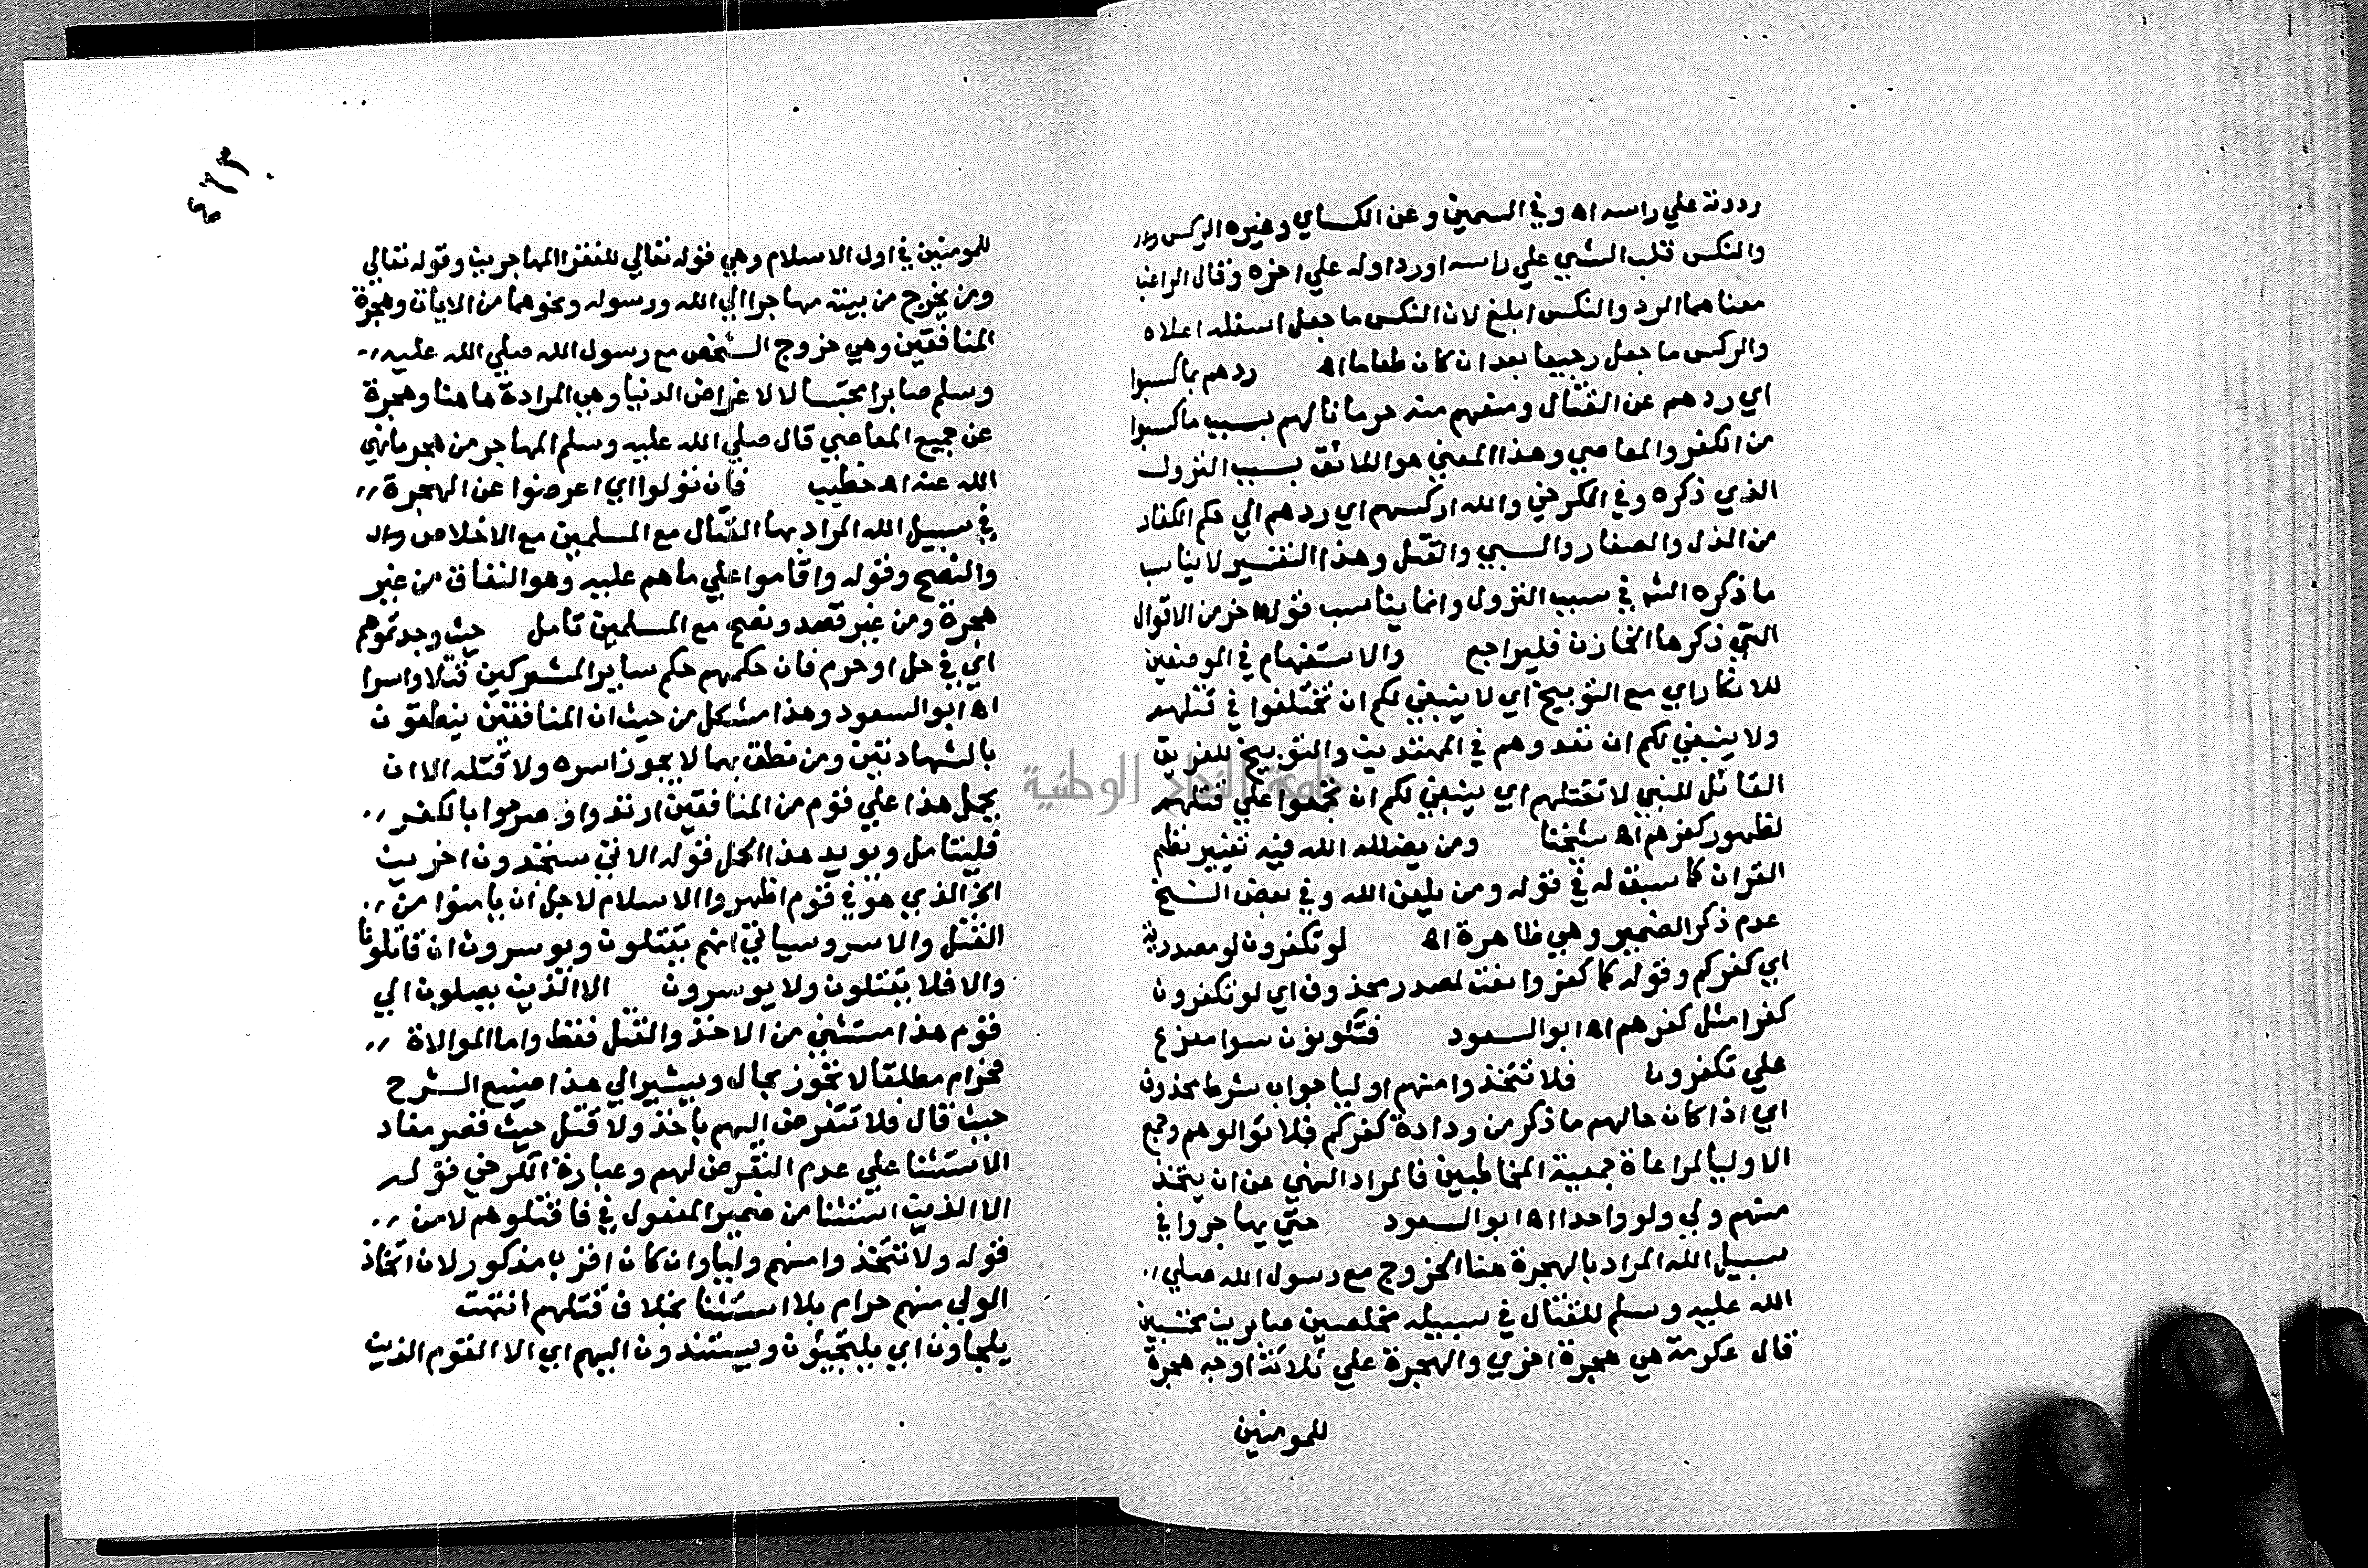 رددته علي راسه اه وفي السمين وعن الكساي وغيره الركس
والنكس قلب الشي علي راسه او رد اوله علي اخره وقال الراغب
معناهما الرد والنكس ابلغ لان النكس ما جعل اسفله اعلاه
والركس ما جعل رجيعا بعد ان كان طعاما اه ردهم بما كسبوا
اي ردهم عن القتال ومنعهم منه حرمانا لهم بسبب ما كسبوا
من الكفر والمعاصي وهذا المعني هو اللائق بسبب النزول
الذي ذكره وفي الكرخي والله اركسهم اي ردهم الي حكم الكفار
من الذل والصغار والسبي والقتل وهذا التفسير لا يناسب
ما ذكره الشم في سبب النزول وانما يناسب قولا اخر من الاقوال
التي ذكرها الخازن فليراجع والاستفهام في الموضعين
للانكار اي مع التوبيخ اي لا ينبغي لكم ان تختلفوا في قتلهم
ولا ينبغي لكم ان تعدوهم في المهتدين والتوبيخ للفريق
القائل للنبي لا تقتلهم اي ينبغي لكم ان تجمعوا علي قتلهم
لظهور كفرهم اه شيخنا ومن يضلله الله فيه تغيير نظم
القران كما سبق له في قوله ومن يلعن الله وفي بعض النسخ
عدم ذكر الضمير وهي ظاهرة اه لو تكفرون لو مصدرية
اي كفركم وقوله كما كفروا نعت لمصدر محذوف اي لو تكفرون
كفرا مثل كفرهم اه ابو السعود فتكونون سوا مفرع
علي تكفرون فلا تتخذوا منهم اوليا جواب شرط محذوف
اي اذا كان حالهم ما ذكر من ودادة كفركم فلا توالوهم وجمع
الاوليا لمراعاة جمعية المخاطبين فالمراد النهي عن ان يتخذ
منهم ولي ولو واحدا اه ابو السعود حتي يهاجروا في
سبيل الله المراد بالهجرة هنا الخروج مع رسول الله صلي
الله عليه وسلم للقتال في سبيله مخلصين صابرين محتسبين
قال عكرمة هي هجرة اخري والهجرة علي ثلاثة اوجه هجرة
للمومنين
٤٦٣
للمومنين في اول الاسلام وهي قوله تعالي للفقرا المهاجرين وقوله تعالي
ومن يخرج من بيته مهاجرا الي الله ورسوله ونحوهما من الايات وهجرة
المنافقين وهي خروج الشخص مع رسول الله صلي الله عليه
وسلم صابرا محتسبا لا لاغراض الدنيا وهي المرادة هاهنا وهجرة
عن جميع المعاصي قال صلي الله عليه وسلم المهاجر من هجر ما نهي
الله عنه اه خطيب فان تولوا اي اعرضوا عن الهجرة
في سبيل الله المراد بها القتال مع المسلمين مع الاخلاص
والنصح وقوله واقاموا علي ما هم عليه وهو النفاق من غير
هجرة ومن غير قصد ونصح مع المسلمين تامل حيث وجدتموهم
اي في حل او حرم فان حكمهم حكم ساير المشركين قتلا واسرا
اه ابو السعود وهذا مشكل من حيث ان المنافقين ينطقون
بالشهادتين ومن نطق بهما لا يجوز اسره ولا قتله الا ان
يحمل هذا علي قوم من المنافقين ارتدوا وصرحوا بالكفر
فليتامل ويويد هذا الحمل قوله الاتي ستجدون اخرين
الخ الذي هو في قوم اظهروا الاسلام لاجل ان يامنوا من
القتل والاسر وسياتي انهم يقتلون ويوسرون ان قاتلونا
والا فلا يقتلون ولا يوسرون الا الذين يصلون الي
قوم هذا مستثني من الاخذ والقتل فقط واما الموالاة
فحرام مطلقا لا تجوز بحال ويشير الي هذا صنيع الشرح
حيث قال فلا تتعرض اليهم باخذ ولا قتل حيث قصر مفاد
الاستثنا علي عدم التعرض لهم وعبارة الكرخي قوله
الا الذين استثنا من ضمير المفعول في فاقتلوهم لا من
قوله ولا تتخذوا منهم وليا وان كان اقرب مذكور لان اتخاذ
الولي منهم حرام بلا استثنا بخلاف قتلهم انتهت
يلجاون اي يلتجيئون ويستندون اليهم اي الا القوم الذين
جامعة النجاح الوطنية